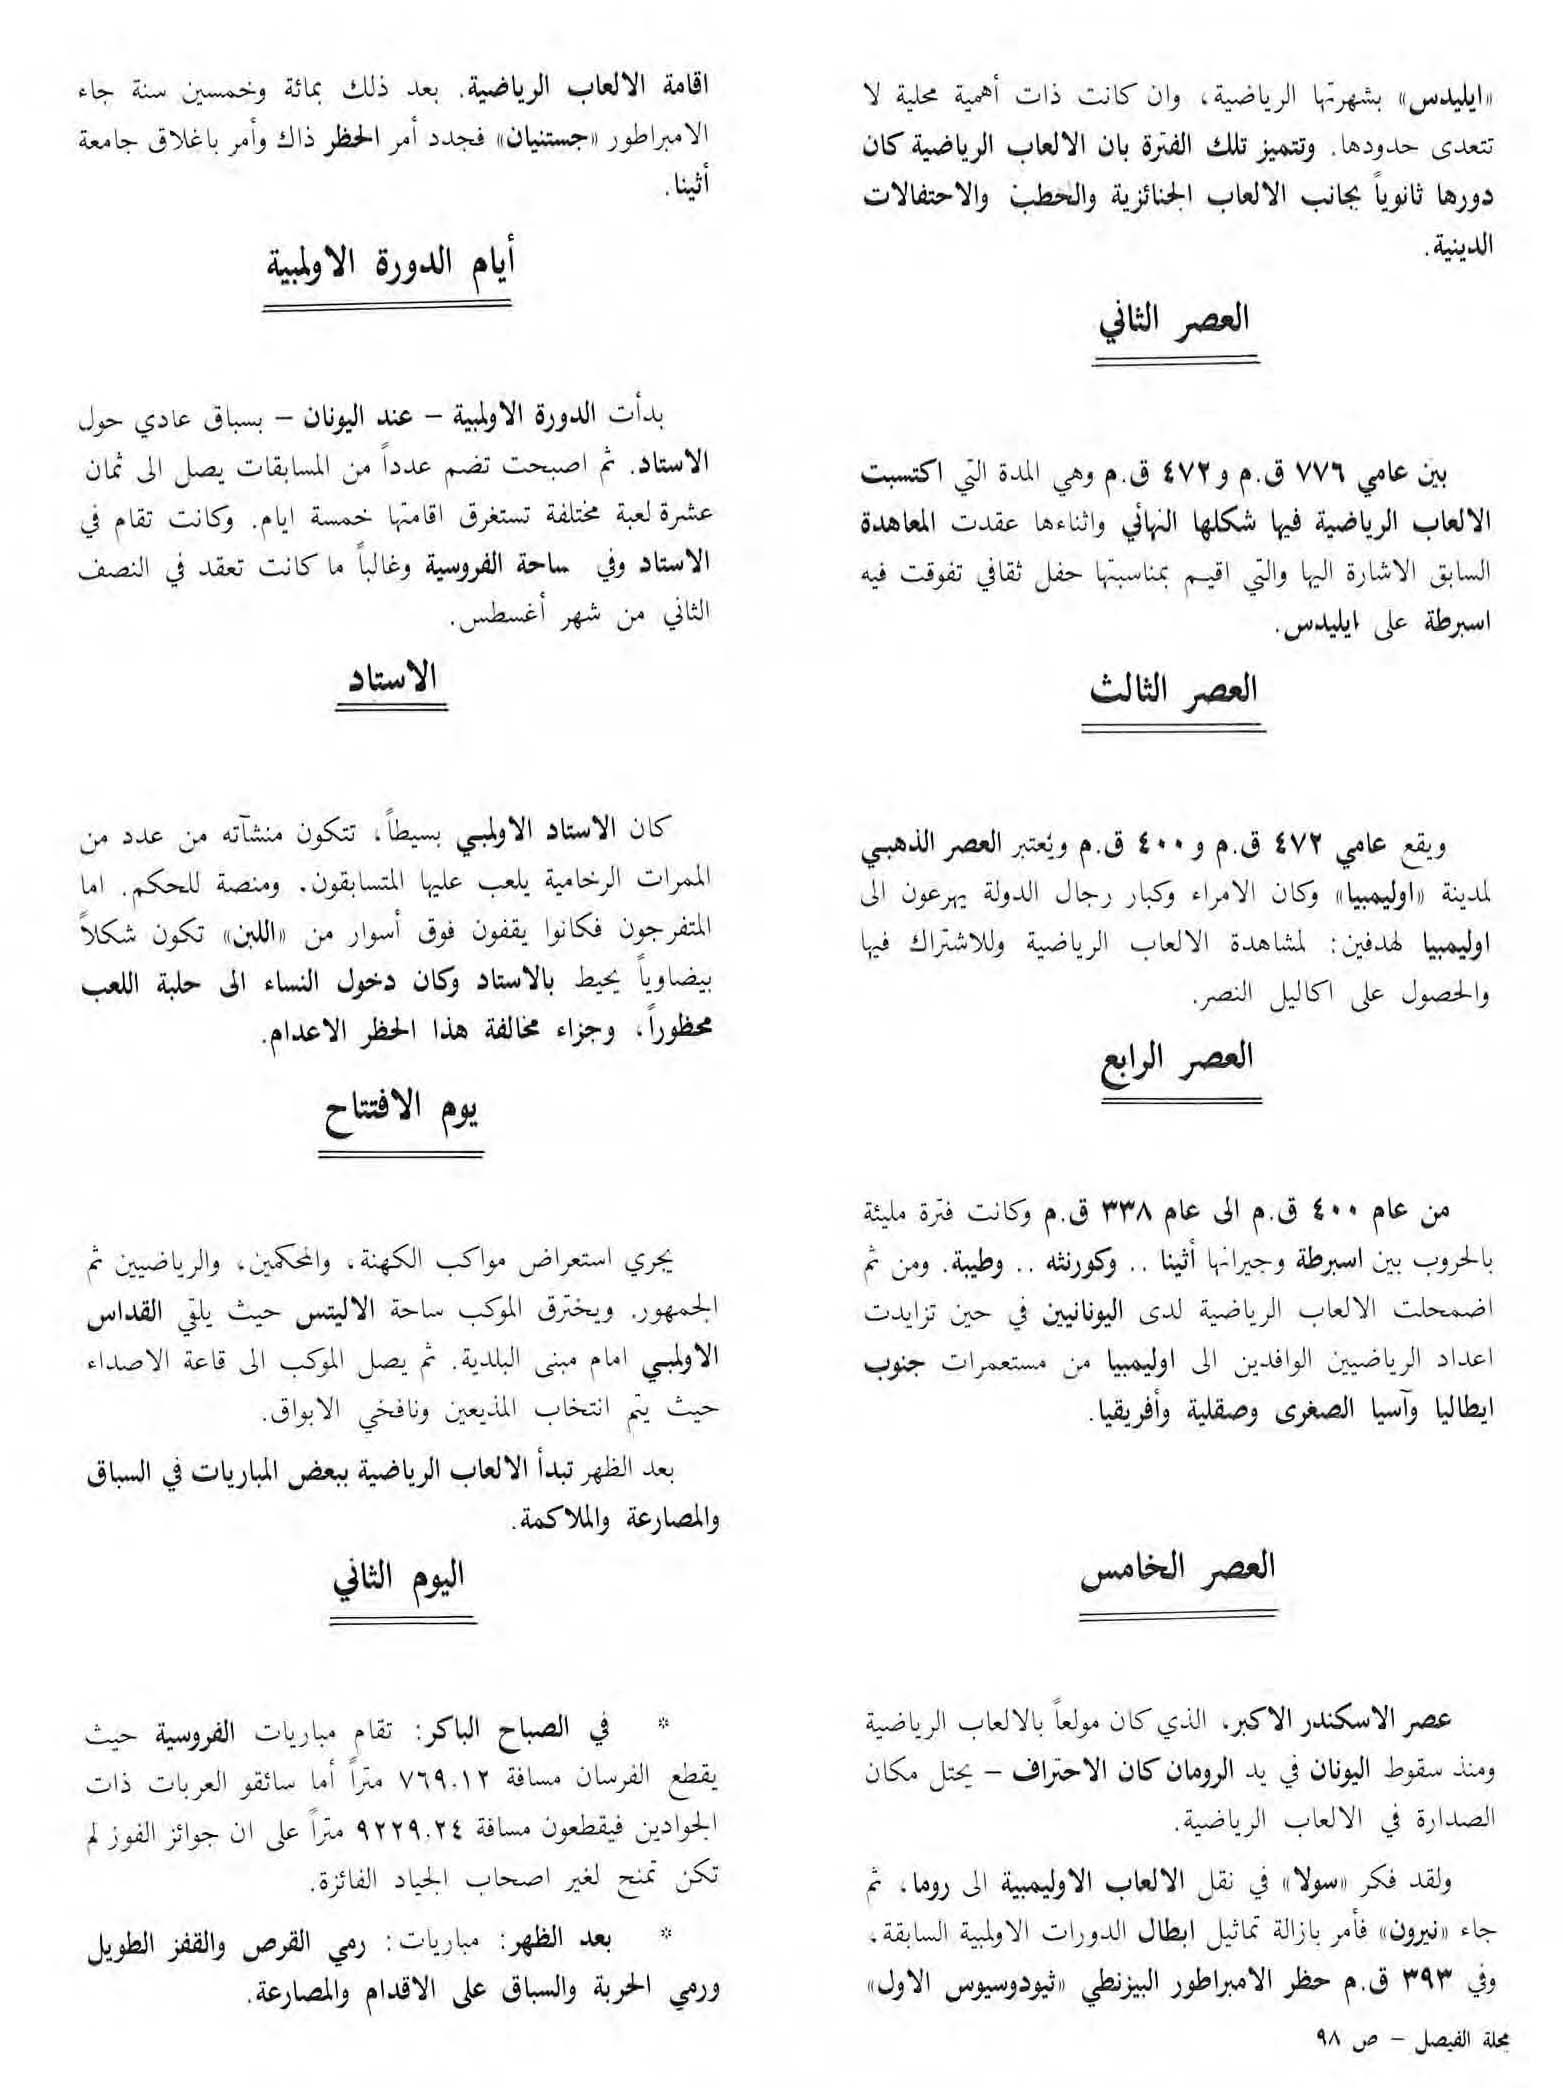 «ايليدس» بشهرتها الرياضية، وان كانت ذات أهمية محلية لا
تتعدى حدودها. وتتميز تلك الفترة بان الالعاب الرياضية كان
دورها ثانوياً بجانب الالعاب الجنائزية والخطب والاحتفالات
الدينية.
العصر الثاني
بين عامي ٧٧٦ ق.م و٤٧٢ ق.م وهي المدة التي اكتسبت
الالعاب الرياضية فيها شكلها النهائي واثناءها عقدت المعاهدة
السابق الاشارة اليها والتي اقيم بمناسبتها حفل ثقافي تفوقت فيه
اسبرطة على ايليدس.
العصر الثالث
ويقع عامي ٤٧٢ ق.م و٤٠٠ ق.م ويُعتبر العصر الذهبي
لمدينة «اوليمبيا» وكان الامراء وكبار رجال الدولة يهرعون الى
اوليمبيا لهدفين: لمشاهدة الالعاب الرياضية وللاشتراك فيها
والحصول على اكاليل النصر.
العصر الرابع
من عام ٤٠٠ ق.م الى عام ٣٣٨ ق.م وكانت فترة مليئة
بالحروب بين اسبرطة وجيرانها أثينا .. وكورنثه .. وطيبة. ومن ثم
اضمحلت الالعاب الرياضية لدى اليونانيين في حين تزايدت
اعداد الرياضيين الوافدين الى اوليمبيا من مستعمرات جنوب
ايطاليا وآسيا الصغرى وصقلية وأفريقيا.
العصر الخامس
عصر الاسكندر الاكبر، الذي كان مولعاً بالالعاب الرياضية
ومنذ سقوط اليونان في يد الرومان كان الاحتراف – يحتل مكان
الصدارة في الالعاب الرياضية.
ولقد فكر «سولا» في نقل الالعاب الاوليمبية الى روما، ثم
جاء «نيرون» فأمر بازالة تماثيل ابطال الدورات الاولمبية السابقة،
وفي ٣٩٣ ق.م حظر الامبراطور البيزنطي «ثيودوسيوس الاول»
مجلة الفيصل – ص ٩٨
اقامة الالعاب الرياضية. بعد ذلك بمائة وخمسين سنة جاء
الامبراطور «جستنيان» فجدد أمر الحظر ذاك وأمر باغلاق جامعة
أثينا.
أيام الدورة الاولمبية
بدأت الدورة الاولمبية – عند اليونان – بسباق عادي حول
الاستاد. ثم اصبحت تضم عدداً من المسابقات يصل الى ثمان
عشرة لعبة مختلفة تستغرق اقامتها خمسة ايام. وكانت تقام في
الاستاد وفي ساحة الفروسية وغالباً ما كانت تعقد في النصف
الثاني من شهر أغسطس.
الاستاد
كان الاستاد الاولمبي بسيطاً، تتكون منشآته من عدد من
الممرات الرخامية يلعب عليها المتسابقون. ومنصة للحكم. اما
المتفرجون فكانوا يقفون فوق أسوار من «اللبن» تكون شكلاً
بيضاوياً يحيط بالاستاد وكان دخول النساء الى حلبة اللعب
محظوراً، وجزاء مخالفة هذا الحظر الاعدام.
يوم الافتتاح
يجري استعراض مواكب الكهنة، والمحكمين، والرياضيين ثم
الجمهور. ويخترق الموكب ساحة الاليتس حيث يلقي القداس
الاولمبي امام مبنى البلدية. ثم يصل الموكب الى قاعة الاصداء
حيث يتم انتخاب المذيعين ونافخي الابواق.
بعد الظهر تبدأ الالعاب الرياضية ببعض المباريات في السباق
والمصارعة والملاكمة.
اليوم الثاني
* في الصباح الباكر: تقام مباريات الفروسية حيث
يقطع الفرسان مسافة ٧٦٩.١٢ متراً أما سائقو العربات ذات
الجوادين فيقطعون مسافة ٩٢٢٩.٢٤ متراً على ان جوائز الفوز لم
تكن تمنح لغير اصحاب الجياد الفائزة.
* بعد الظهر: مباريات: رمي القرص والقفز الطويل
ورمي الحربة والسباق على الاقدام والمصارعة.